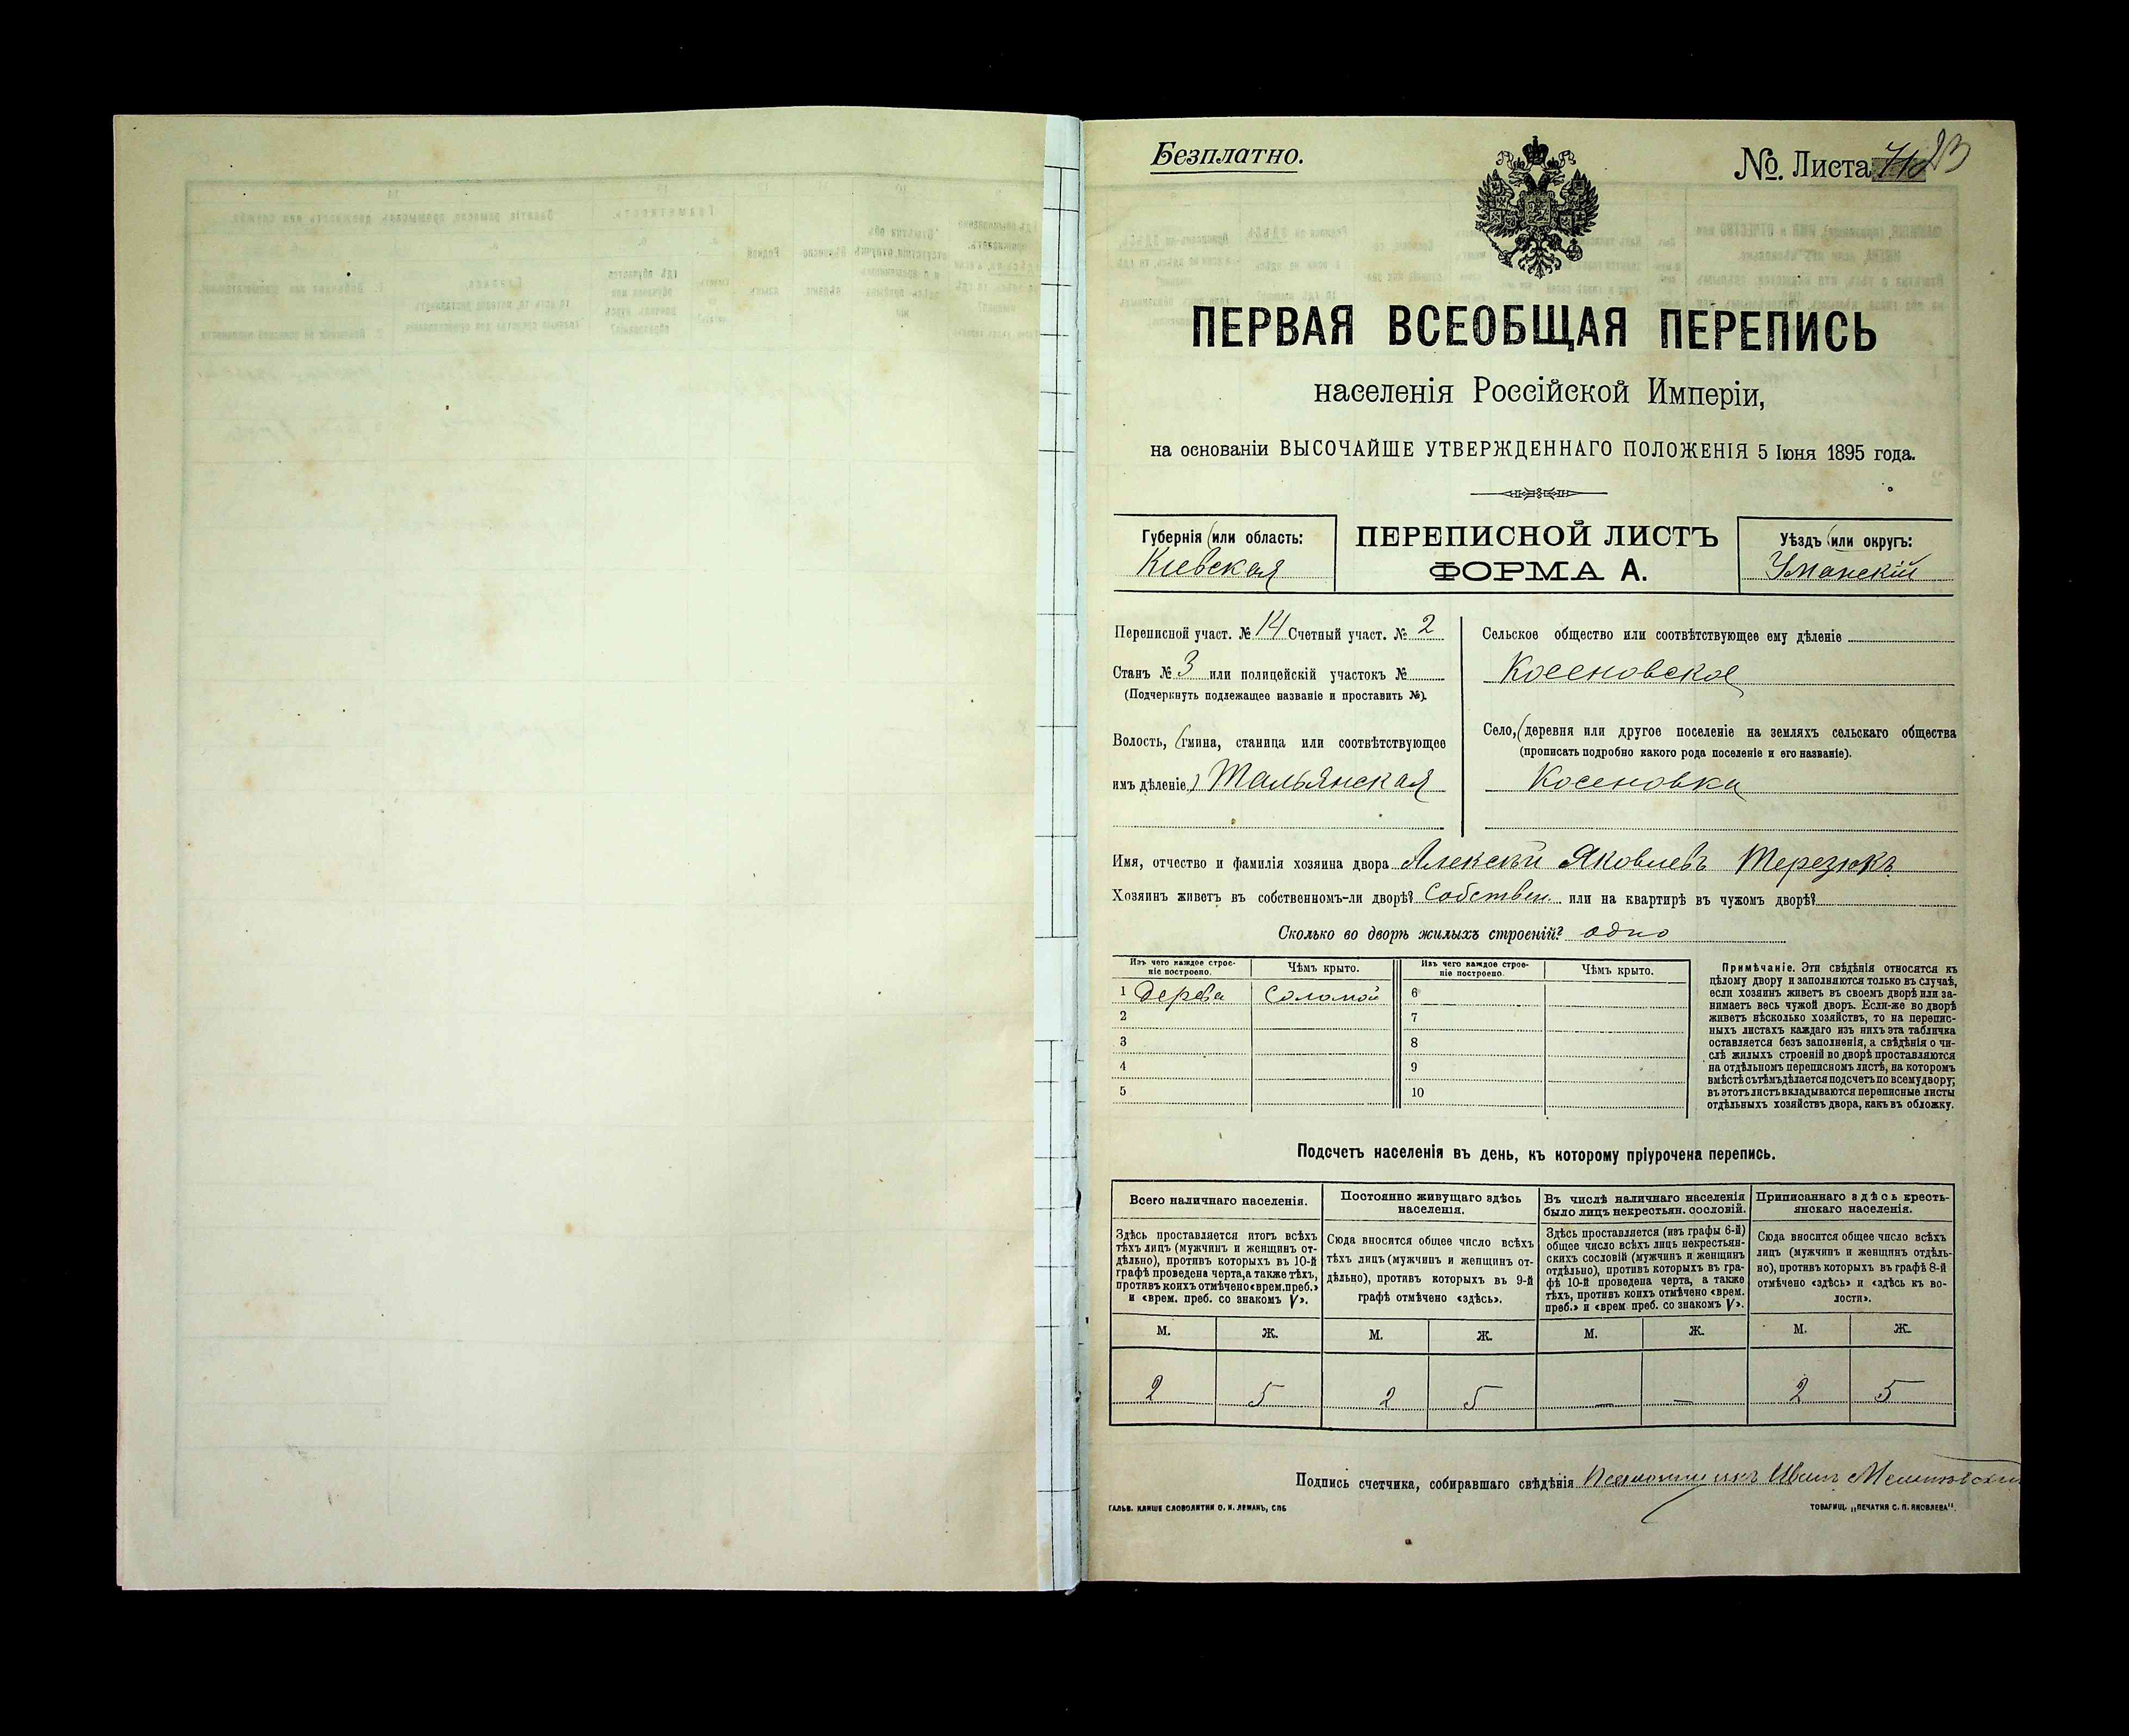 Безплатно.
№. Листа
ПЕРВАЯ ВСЕОБЩАЯ ПЕРЕПИСЬ
населенія Россійской Имперіи,
на основаніи ВЫСОЧАЙШЕ УТВЕРЖДЕННАГО ПОЛОЖЕНІЯ 5 Іюня 1895 года.
Губернія (или область:
Кіевская
ПЕРЕПИСНОЙ ЛИСТЪ
ФОРМА А.
Уѣздъ (или округъ:
Уманскій
Переписной участ. № 14 Счетный участ. № 2
Станъ № 3 или полицейскій участокъ №
(Подчеркнуть подлежащее названіе и проставить №).
Волость, (гмина, станица или соотвѣтствующее
имъ дѣленіе) Тальянская
Сельское общество или соотвѣтствующее ему дѣленіе
Косеновское
Село, (деревня или другое поселеніе на земляхъ сельскаго общества
(прописать подробно какого рода поселеніе и его названіе).
Косеновка
Имя, отчество и фамилія хозяина двора Алексѣй Яковлевъ Терезюкъ
Хозяинъ живетъ въ собственномъ-ли дворѣ? Собствен. или на квартирѣ въ чужомъ дворѣ?
Сколько во дворѣ жилыхъ строеній? одно
Изъ чего каждое строе-
ніе построено.
Чѣмъ крыто.
Изъ чего каждое строе-
ніе построено.
Чѣмъ крыто.
1 дерева соломой 6
2 7
3 8
4 9
5 10
Примѣчаніе. Эти свѣдѣнія относятся къ
цѣлому двору и заполняются только въ случаѣ,
если хозяинъ живетъ въ своемъ дворѣ или за-
нимаетъ весь чужой дворъ. Если-же во дворѣ
живетъ нѣсколько хозяйствъ, то на перепис-
ныхъ листахъ каждаго изъ нихъ эта табличка
оставляется безъ заполненія, а свѣдѣнія о чи-
слѣ жилыхъ строеній во дворѣ проставляются
на отдѣльномъ переписномъ листѣ, на которомъ
вмѣстѣ съ тѣмъ дѣлается подсчетъ по всему двору;
въ этотъ листъ вкладываются переписные листы
отдѣльныхъ хозяйствъ двора, какъ въ обложку.
Подсчетъ населенія въ день, къ которому пріурочена перепись.
Всего наличнаго населенія.
Здѣсь проставляется итогъ всѣхъ
тѣхъ лицъ (мужчинъ и женщинъ от-
дѣльно), противъ которыхъ въ 10-й
графѣ проведена черта, а также тѣхъ,
противъ коихъ отмѣчено «врем. преб.»
и «врем. преб. со знакомъ V».
Постоянно живущаго здѣсь
населенія.
Сюда вносится общее число всѣхъ
тѣхъ лицъ (мужчинъ и женщинъ от-
дѣльно), противъ которыхъ въ 9-й
графѣ отмѣчено «здѣсь».
Въ числѣ наличнаго населенія
было лицъ некрестьян. сословій.
Здѣсь проставляется (изъ графы 6-й)
общее число всѣхъ лицъ некрестьян-
скихъ сословій (мужчинъ и женщинъ
отдѣльно), противъ которыхъ въ гра-
фѣ 10-й проведена черта, а также
тѣхъ, противъ коихъ отмѣчено «врем.
преб.» и «врем преб. со знакомъ V».
Приписаннаго здѣсь кресть-
янскаго населенія.
Сюда вносится общее число всѣхъ
лицъ (мужчинъ и женщинъ отдѣль-
но), противъ которыхъ въ графѣ 8-й
отмѣчено «здѣсь» и «здѣсь къ во-
лости».
М. Ж. М. Ж. М. Ж. М. Ж.
2 5 2 5 — — 2 5
Подпись счетчика, собиравшаго свѣдѣнія Иванъ
ГАЛЬВ. КЛИШЕ СЛОВОЛИТНИ О. И. ЛЕМАНЪ, СПБ
ТОВАРИЩ. „ПЕЧАТНЯ С. П. ЯКОВЛЕВА".